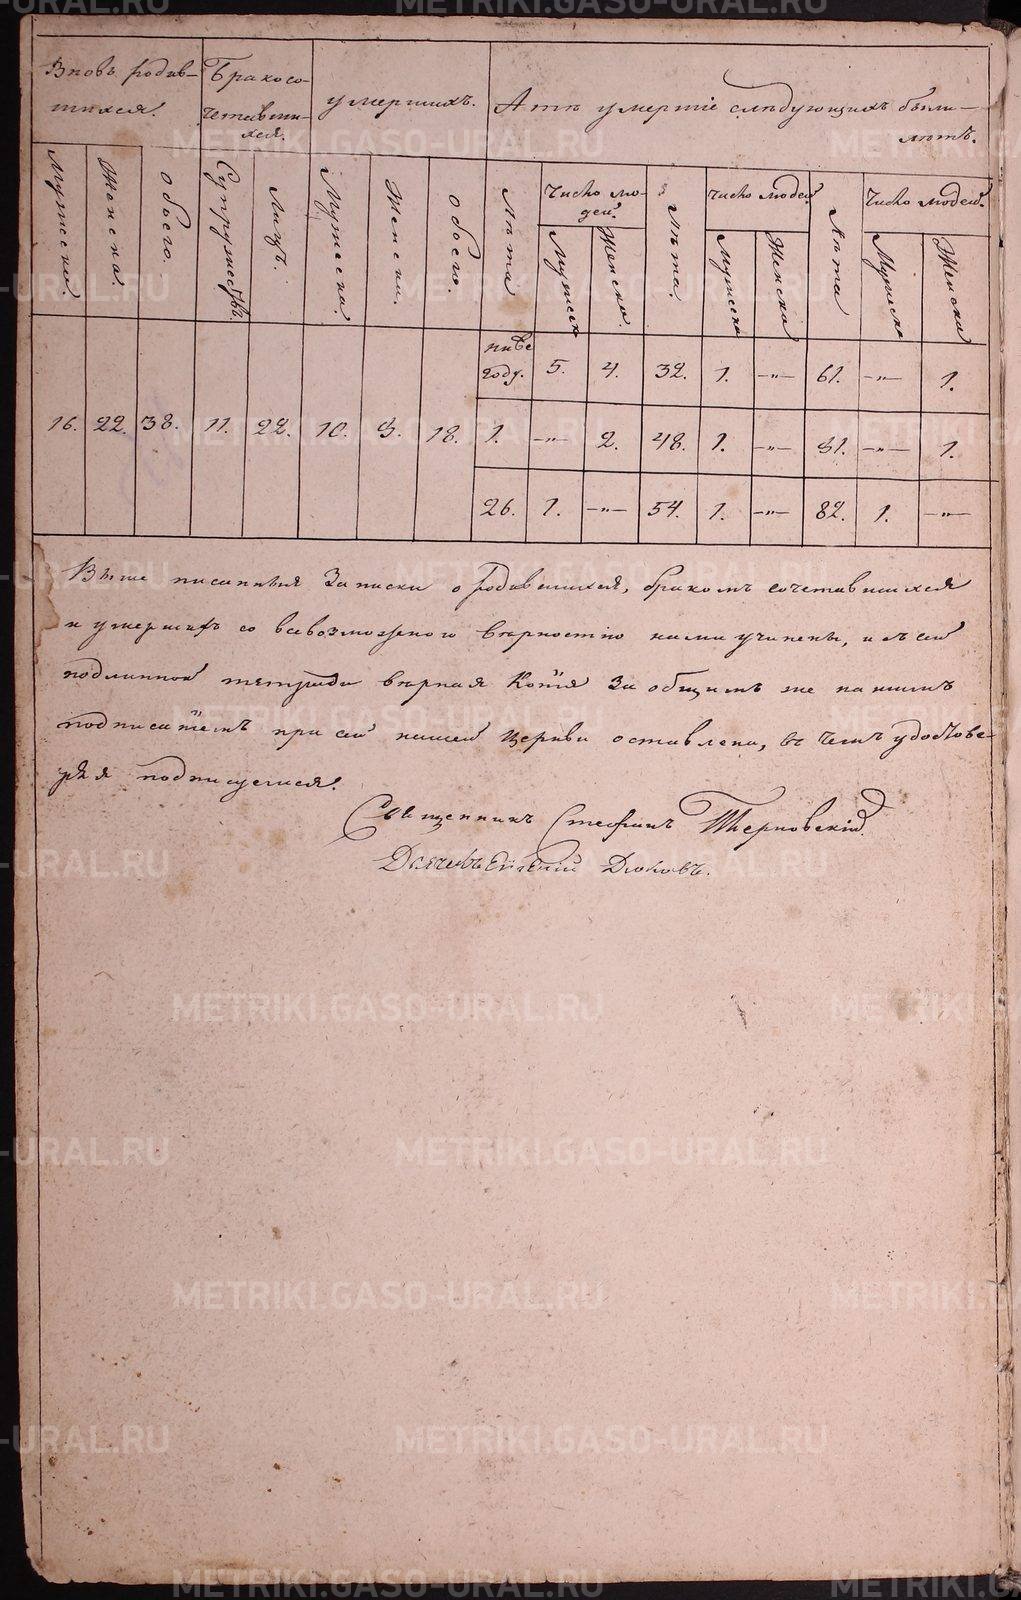 Вновь родив-
шихся.
Бракосо-
четавши-
хся.
умершихъ.
А тѣ умершіе слѣдующихъ были
лѣтъ.
Мужески.
Женска.
обоего.
Супружествъ.
Лицъ.
Мужеска.
Женски.
обоего.
Лѣта
Число лю-
дей.
Мужеск
Женска.
Лѣта.
Число людей
Мужеска
Женска
Лѣта
Число людей.
Мужеска
Женска
16. 22. 38. 11. 22. 10. 8. 18.
ниже
году. 5. 4. 32. 1. —„— 61. —„— 1.
1. —„— 2. 48. 1. —„— 81. —„— 1.
26. 1. —„— 54. 1. —„— 82. 1. —„—
Выше писанныя Записки о родившихся, бракомъ сочетавшихся
и умершихъ со всевозможною вѣрностію нами учинены, и съ сей
подлинной тетради вѣрная Копія за общимъ же нашимъ
подписаніемъ при сей нашей Церкви оставлена, въ чемъ удостове-
ряя подписуемся.
Священникъ Стефанъ Терновскій.
Дьячекъ Евгеній Дюковъ.
METRIKI.GASO-URAL.RU